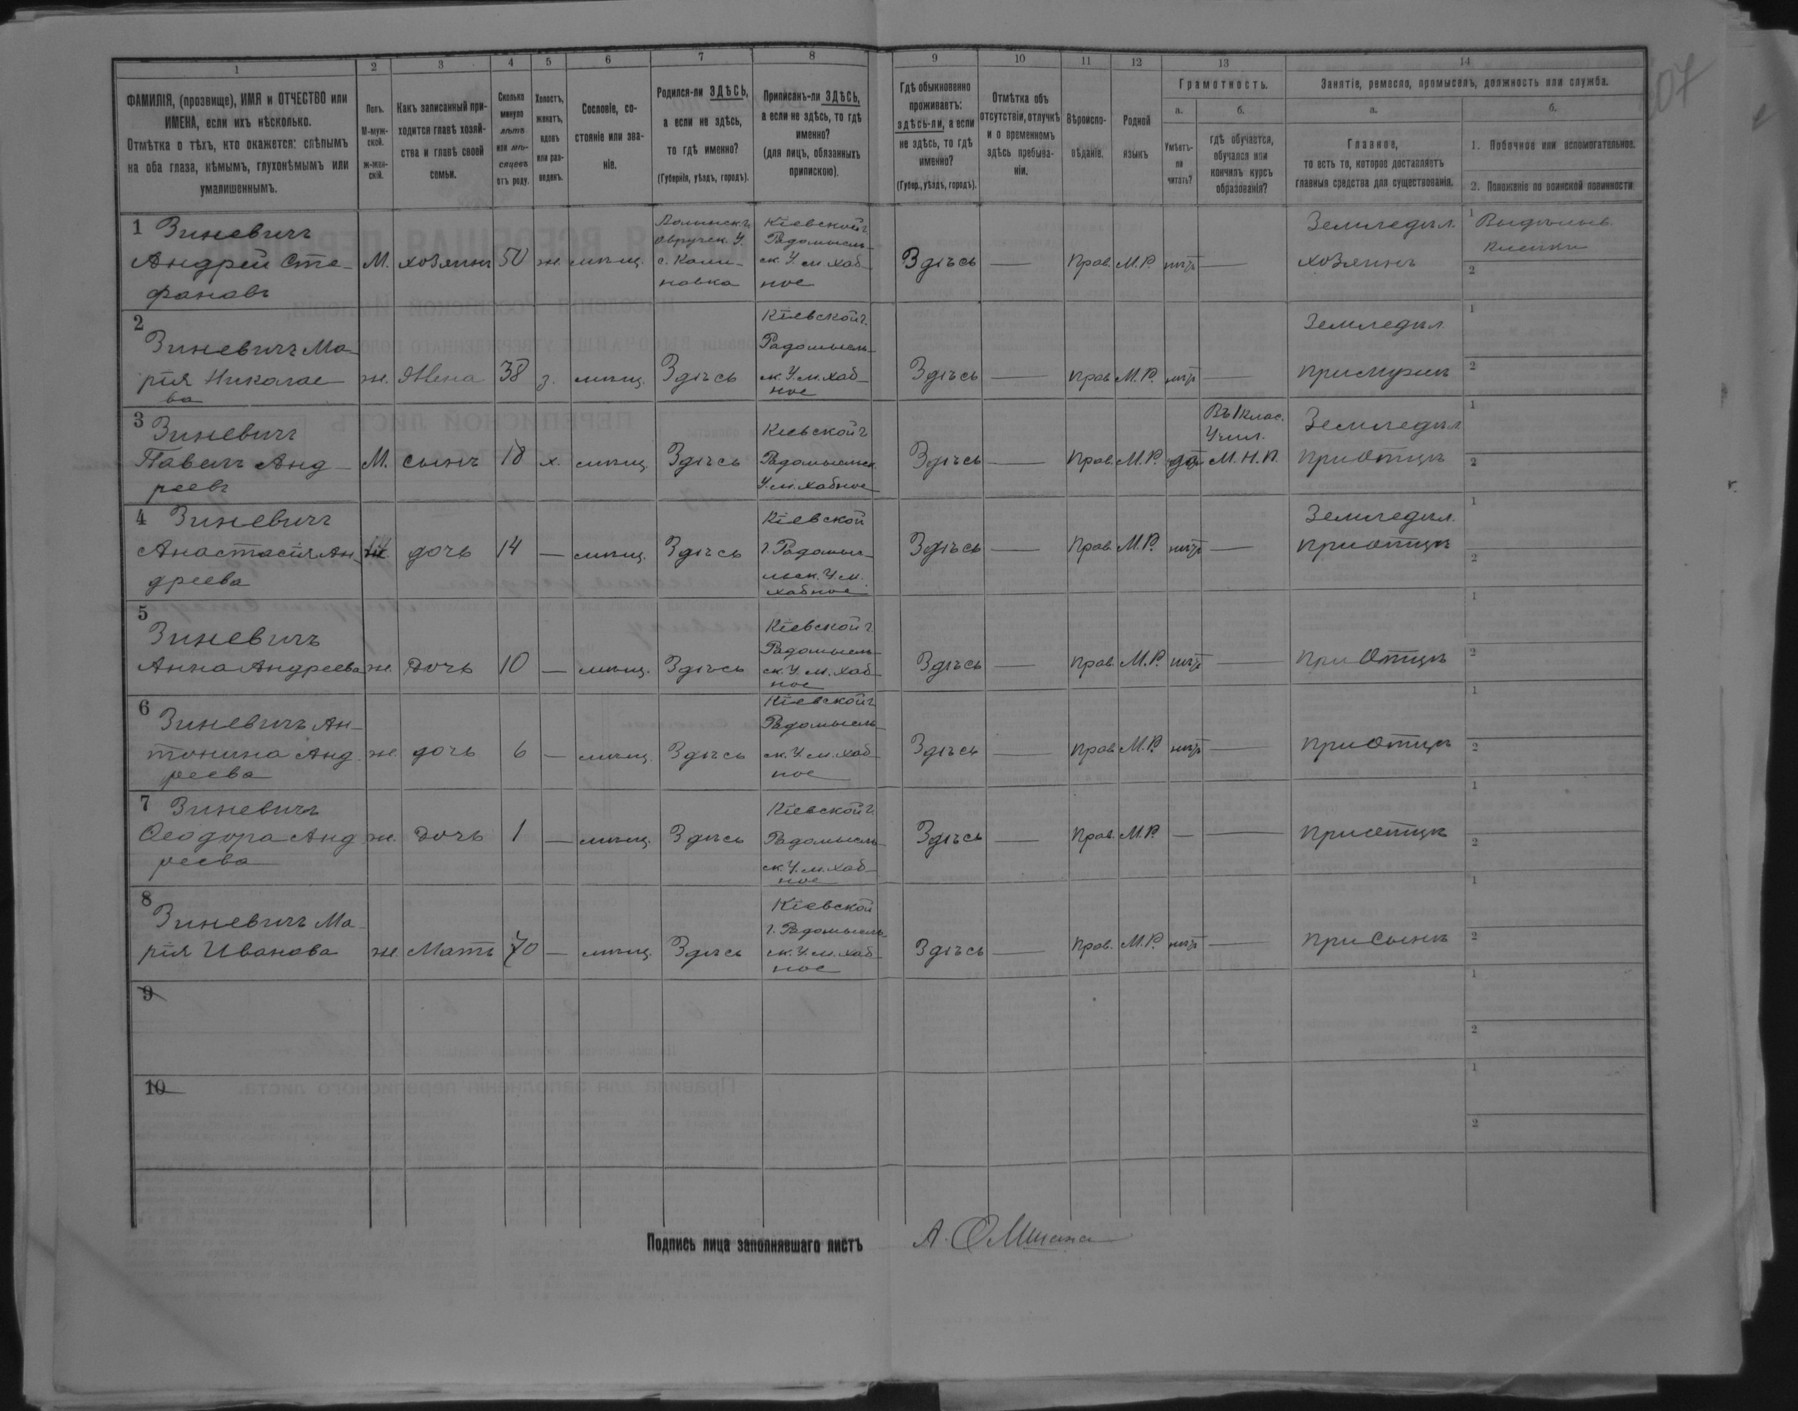 107
1 2 3 4 5 6 7 8 9 10 11 12 13 14
ФАМИЛІЯ, (прозвище), ИМЯ и ОТЧЕСТВО или
ИМЕНА, если ихъ нѣсколько.
Отмѣтка о тѣхъ, кто окажется: слѣпымъ
на оба глаза, нѣмымъ, глухонѣмымъ или
умалишеннымъ.
Полъ.
М-муж-
ской.
Ж-жен-
скій.
Какъ записанный при-
ходится главѣ хозяй-
ства и главѣ своей
семьи.
Сколько
минуло
лѣтъ
или мѣ-
сяцевъ
отъ роду.
Холостъ,
женатъ,
вдовъ
или раз-
веденъ.
Сословіе, со-
стояніе или зва-
ніе.
Родился-ли ЗДѢСЬ,
а если не здѣсь,
то гдѣ именно?
(Губернія, уѣздъ, городъ).
Приписанъ-ли ЗДѢСЬ,
а если не здѣсь, то гдѣ
именно?
(для лицъ, обязанныхъ
припискою).
Гдѣ обыкновенно
проживаетъ:
здѣсь-ли, а если
не здѣсь, то гдѣ
именно?
(Губер., уѣздъ, городъ).
Отмѣтка объ
отсутствіи, отлучкѣ
и о временномъ
здѣсь пребыва-
ніи.
Вѣроиспо-
вѣданіе.
Родной
языкъ
Грамотность.
а.
Умѣетъ-
ли
читать?
б.
гдѣ обучается,
обучался или
кончилъ курсъ
образованія?
Занятіе, ремесло, промыселъ, должность или служба.
а.
Главное,
то есть то, которое доставляетъ
главныя средства для существованія.
б.
1. Побочное или вспомогательное.
2. Положеніе по воинской повинности
1 Зиневичъ
Андрей Сте-
фановъ
М. хозяинъ 50 ж. мѣщ.
Волынск.
Овручск. У.
с. Кали-
новка
Кіевской г.
Радомысль-
ск. У. м. Хаб-
ное
Здѣсь — Прав. М.Р. нѣтъ —
Земледѣл.
хозяинъ
1
2
2
Зиневичъ Ма-
рія Николае-
ва
ж. Жена 38 з. мѣщ. Здѣсь
Кіевской г.
Радомысль-
ск. У. м. Хаб-
ное
Здѣсь — Прав. М.Р. нѣтъ —
Земледѣл.
при мужѣ
1
2
3
Зиневичъ
Павелъ Анд-
реевъ
М. сынъ 18 х. мѣщ. Здѣсь
Кіевской г.
Радомысльск.
У. м. Хабное
Здѣсь — Прав. М.Р. да
Въ 1 клас.
Учил.
М. Н. П.
Земледѣл.
при отцѣ
1
2
4 Зиневичъ
Анастасія Ан-
дреева
ж. дочь 14 — мѣщ. Здѣсь
Кіевской
г. Радомыс-
льск. У. м.
Хабное
Здѣсь — Прав. М.Р. нѣтъ —
Земледѣл.
при отцѣ
1
2
5
Зиневичъ
Анна Андреева
ж. дочь 10 — мѣщ. Здѣсь
Кіевской г.
Радомысль-
ск. У. м. Хаб-
ное
Здѣсь — Прав. М.Р. нѣтъ — при Отцѣ
1
2
6
Зиневичъ Ан-
тонина Анд-
реева
ж. дочь 6 — мѣщ. Здѣсь
Кіевской г.
Радомысль-
ск. У. м. Хаб-
ное
Здѣсь — Прав. М.Р. нѣтъ — при Отцѣ
1
2
7 Зиневичъ
Ѳеодора Анд-
реева
ж. дочь 1 — мѣщ. Здѣсь
Кіевской г.
Радомысль-
ск. У. м. Хаб-
ное
Здѣсь — Прав. М.Р. — — при отцѣ
1
2
8
Зиневичъ Ма-
рія Иванова
ж. Мать 70 — мѣщ. Здѣсь
Кіевской
г. Радомысль-
ск. У. м. Хаб-
ное
Здѣсь — Прав. М.Р. нѣтъ — при Сынѣ
1
2
9
1
2
10
1
2
Подпись лица заполнявшаго листъ А.